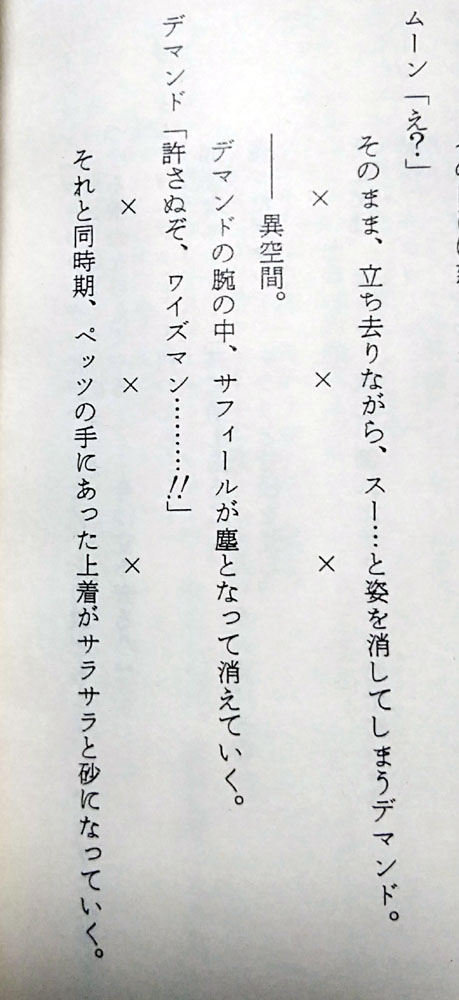 ムーン「え?」
そのまま、立ち去りながら、スー…と姿を消してしまうデマンド。
× × ×
―― 異空間。
デマンドの腕の中、サフィールが塵となって消えていく。
デマンド「許さぬぞ、ワイズマン………!!」
× × ×
それと同時期、ペッツの手にあった上着がサラサラと砂になっていく。